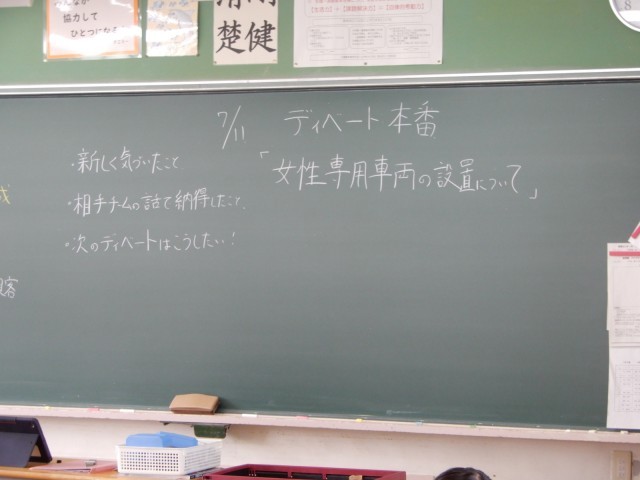 協力して
ひとつになる
清
楚
健
8
7/11 ディベート本番
「女性専用車両の設置について」
・新しく気づいたこと
・相手チームの話で納得したこと
・次のディベートはこうしたい!
成
客